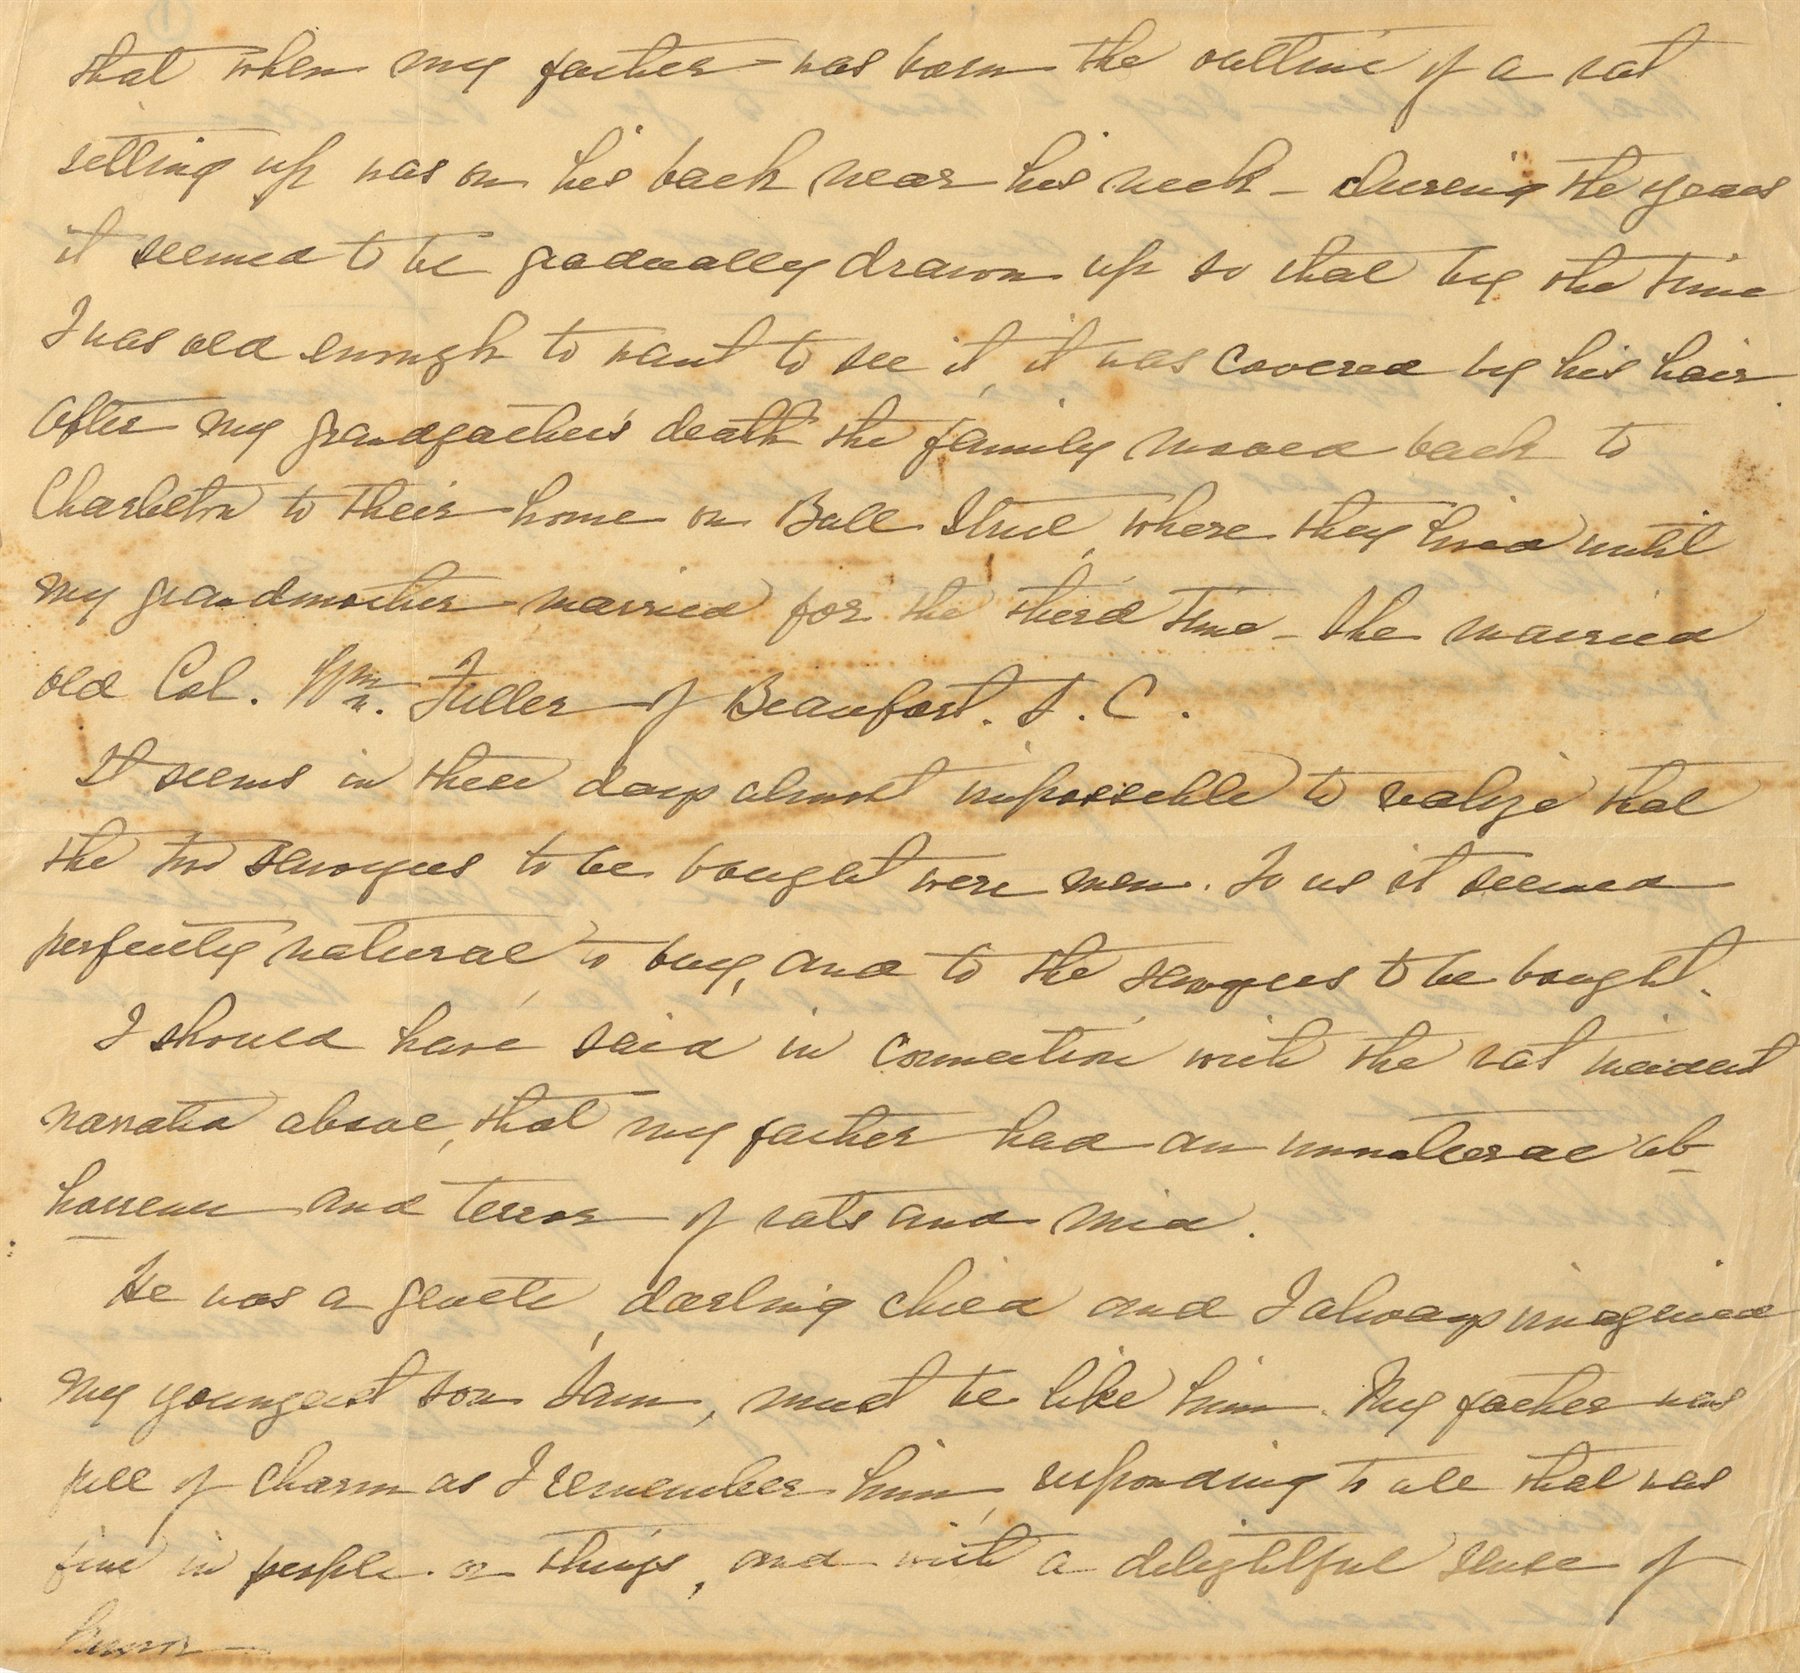 that when my father was born the outline of a rat
setting up was on his back near his neck – during the years
it seemed to be gradually drawn up so that by the time
I was old enough to want to see it, it was covered by his hair.
After my grandfather's death the family moved back to
Charleston to their home on Bull Street, where they lived until
my grandmother married for the third time – She married
old Col. Wm. Fuller of Beaufort. S. C.
It seems in these days almost impossible to realize that
the two Seewees to be bought were men. To us it seemed
perfectly natural to buy, and to the to be bought.
I should have said in connection with the rat incident
narrated above, that my father had an unnatural ab-
horrence and terror of rats and mice.
He was a gentle, darling child and I always imagined
my youngest son Sam, must be like him. My father was
full of charm as I remember him, responding to all that was
fine in people or things, and with a delightful sense of
humor –